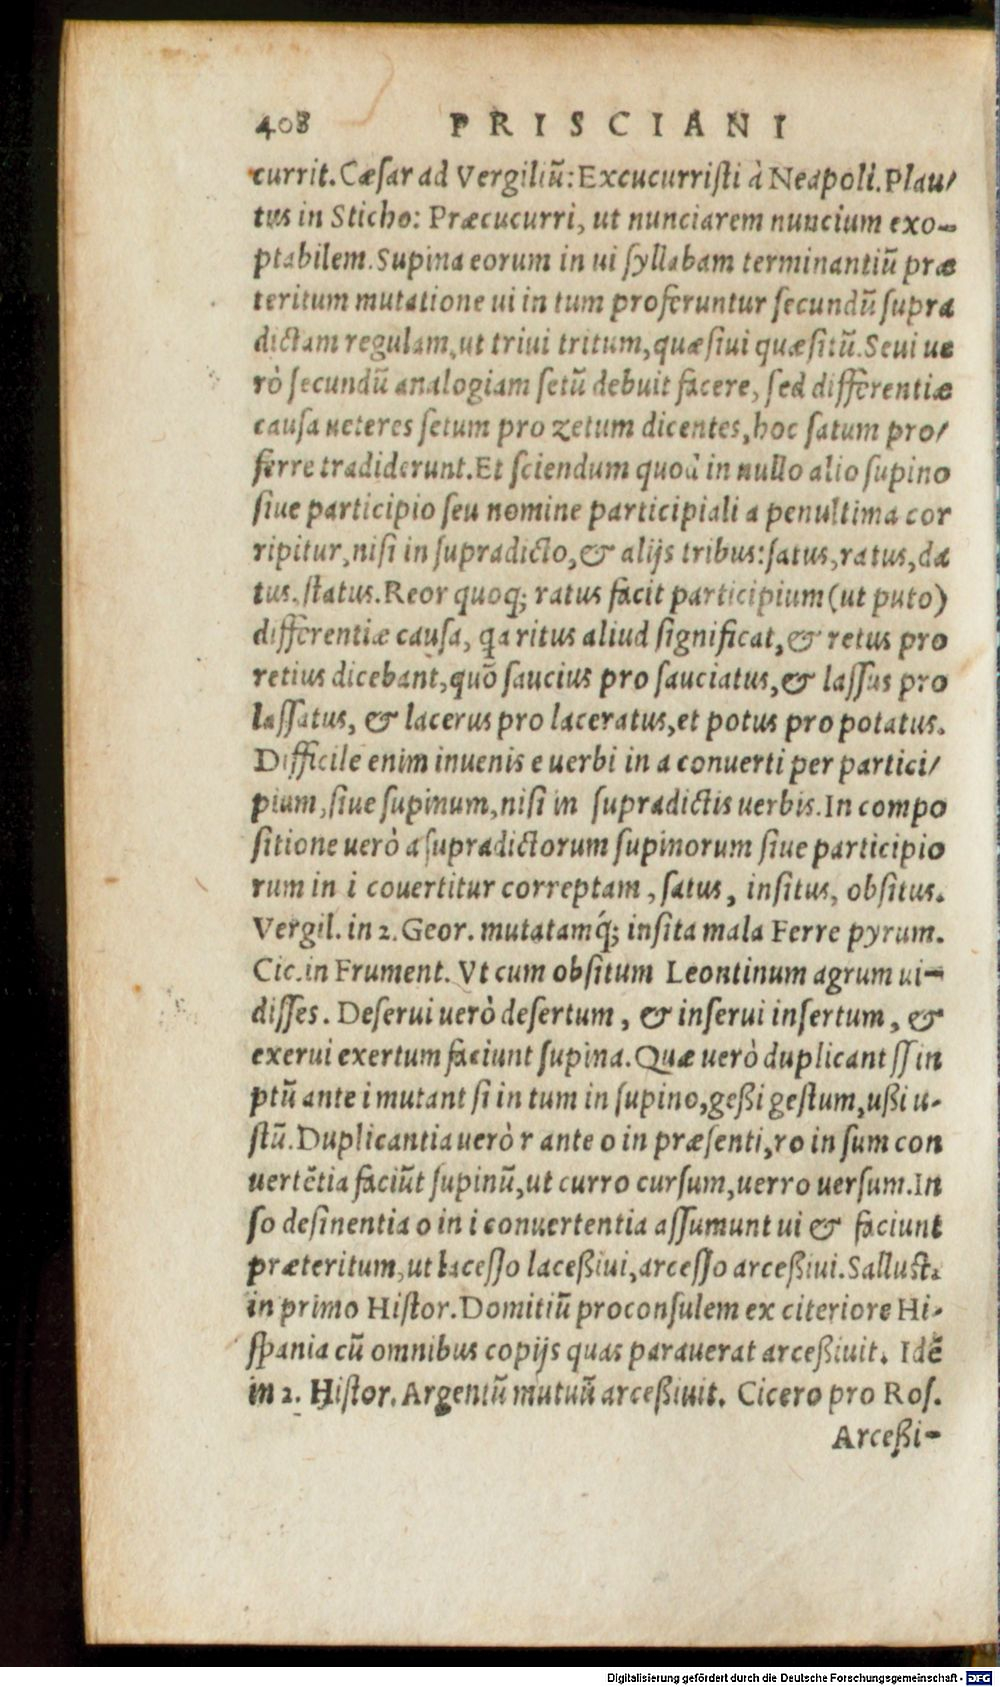 408 PRISCIANI
currit. Cæſar ad Vergiliū: Excucurriſti à Neapoli. Plau/
tus in Sticho: Præcucurri, ut nunciarem nuncium exo-
ptabilem. Supina eorum in ui ſyllabam terminantiū præ
teritum mutatione ui in tum proferuntur ſecundū ſupra
dictam regulam, ut triui tritum, quæſiui quæſitū. Seui ue
rò ſecundū analogiam ſetū debuit facere, ſed differentiæ
cauſa ueteres ſetum pro zetum dicentes, hoc ſatum pro/
ferre tradiderunt. Et ſciendum quod in nullo alio ſupino
ſiue participio ſeu nomine participiali a penultima cor
ripitur, niſi in ſupradicto, & alijs tribus: ſatus, ratus, da
tus. ſtatus. Reor quoq; ratus facit participium (ut puto)
differentiæ cauſa, qa ritus aliud ſignificat, & retus pro
retius dicebant, quō ſaucius pro ſauciatus, & laſſus pro
laſſatus, & lacerus pro laceratus, et potus pro potatus.
Difficile enim inuenis e uerbi in a conuerti per partici/
pium, ſiue ſupinum, niſi in ſupradictis uerbis. In compo
ſitione uerò a ſupradictorum ſupinorum ſiue participio
rum in i couertitur correptam, ſatus, inſitus, obſitus.
Vergil. in 2. Geor. mutatamq́; inſita mala Ferre pyrum.
Cic. in Frument. Vt cum obſitum Leontinum agrum ui-
diſſes. Deſerui uerò deſertum, & inſerui inſertum, &
exerui exertum faciunt ſupina. Quæ uerò duplicant ſſ in
ptū ante i mutant ſi in tum in ſupino, geßi geſtum, ußi u-
ſtū. Duplicantia uerò r ante o in præſenti, ro in ſum con
uertētia faciūt ſupinū, ut curro curſum, uerro uerſum. In
ſo deſinentia o in i conuertentia aſſumunt ui & faciunt
præteritum, ut laceſſo laceßiui, arceſſo arceßiui. Salluſt.
in primo Hiſtor. Domitiū proconſulem ex citeriore Hi-
ſpania cū omnibus copijs quas parauerat arceßiuit. Idē
in 2. Hiſtor. Argentū mutuū arceßiuit. Cicero pro Roſ.
Arceßi-
Digitalisierung gefördert durch die Deutsche Forschungsgemeinschaft - DFG